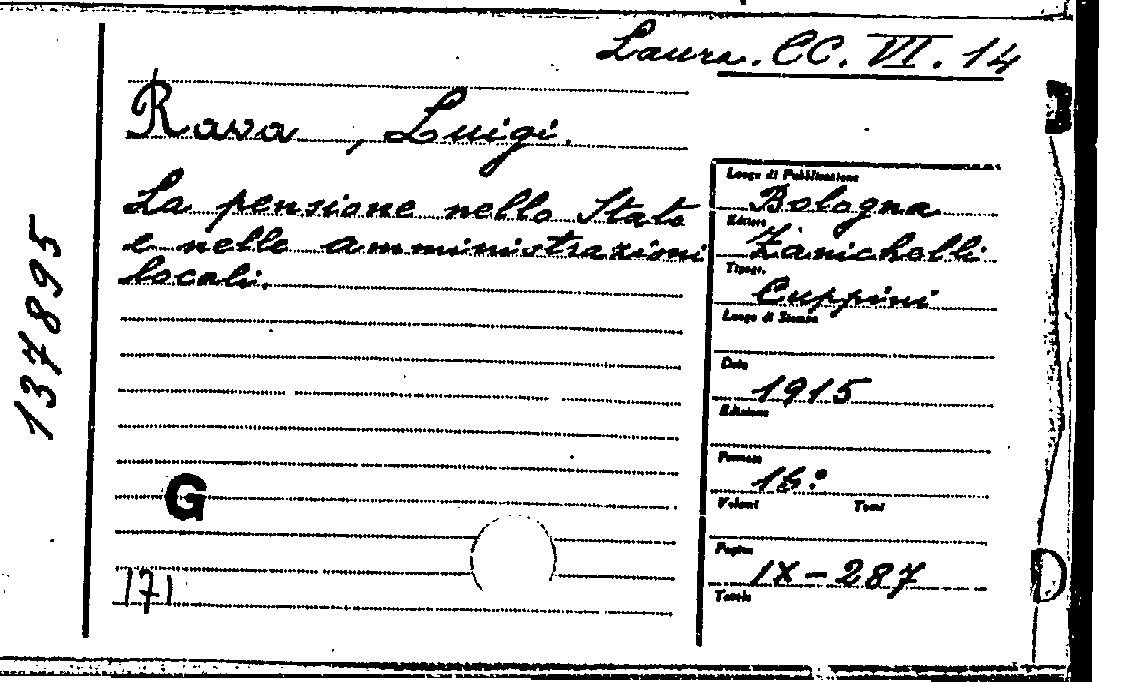 Laura. CC. VI. 14
Rava, Luigi.
La pensione nello Stato
e nelle amministrazioni
locali.
137895
G
171
Luogo di Pubblicazione
Bologna
Editore
Zanichelli
Tipogr.
Cuppini
Luogo di Stampa
Data
1915
Edizione
Formato
16°
Volumi Tomi
Pagine
IX-287
Tavole